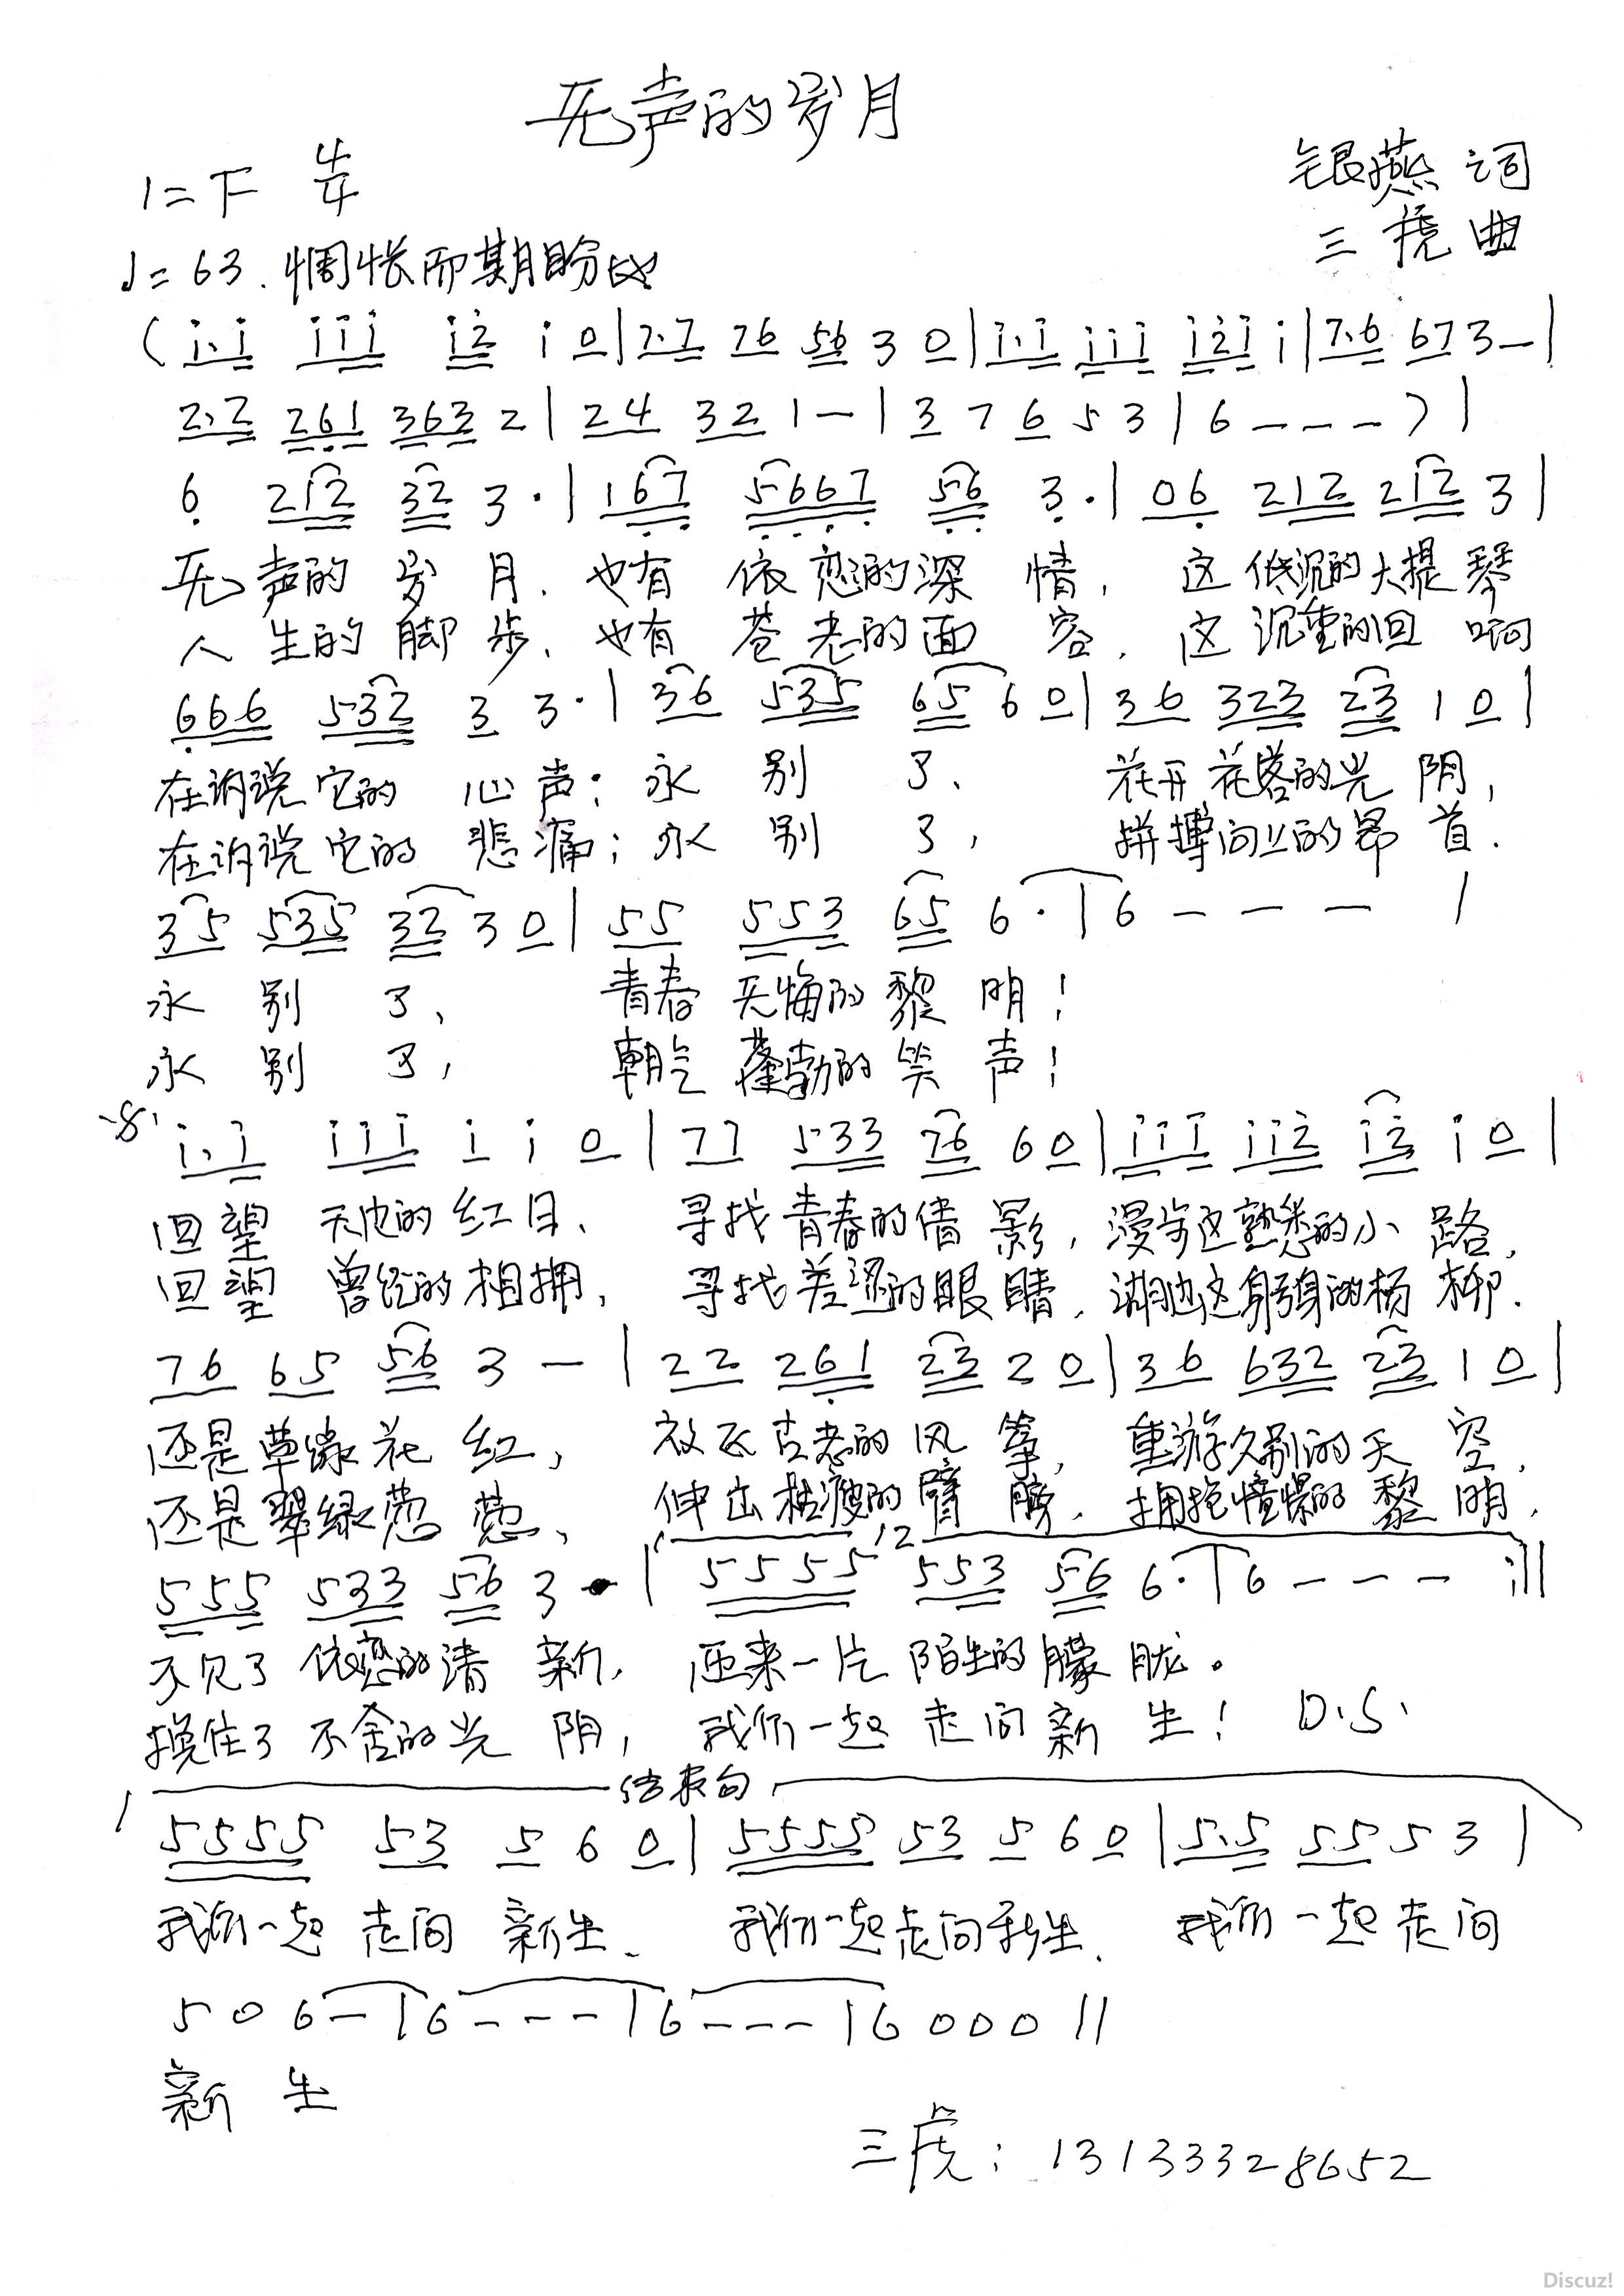 无声的岁月
1=F 4/4
银燕 词
♩=63. 惆怅而期盼地
三虎 曲
( i.i iii i2 i 0 | 7.7 76 56 3 0 | i.i iii i2i i | 7.6 67 3 - |
2.2 261 363 2 | 24 32 1 - | 3 7 6 5 3 | 6 - - - ) |
6 212 32 3 . | 167 5667 56 3 . | 06 212 212 3 |
无 声的 岁 月. 也有 依恋的深 情, 这低沉的大提琴
人 生的 脚 步, 也有 苍老的面 容, 这沉重的回 响
666 532 3 3 . | 36 535 65 6 0 | 36 323 23 1 0 |
在诉说它的 心声: 永 别 了、 花开花落的光 阴,
在诉说它的 悲痛; 永 别 了, 拼搏向上的昂 首.
35 535 32 3 0 | 55 553 65 6 . | 6 - - - |
永 别 了、 青春 无悔的黎 明!
永 别 了, 朝气 蓬勃的笑 声!
i.i iii i i 0 | 77 533 76 6 0 | iii ii2 i2 i 0 |
回望 天边的红日、 寻找青春的倩 影, 漫步这熟悉的小 路,
回望 曾经的相拥, 寻找羞涩的眼 睛, 湖边这躬身的杨 柳.
76 65 56 3 - | 22 261 23 2 0 | 36 632 23 1 0 |
还是草绿花 红, 放飞古老的风 筝, 重游久别的天 空,
还是翠绿葱 葱, 伸出枯瘦的臂 膀, 拥抱憧憬的黎 明,
555 533 56 3 - | 5555 12 553 56 6 . | 6 - - - :||
不见了依恋的清 新, 迎来一片陌生的朦 胧。
挽住了不舍的光 阴, 我们一起走向新 生! D.S.
结束句
5555 53 5 6 0 | 5555 53 5 6 0 | 5.5 55 5 3 |
我们一起 走向 新生、 我们一起走向新生、 我们一起走向
5 0 6 - | 6 - - - | 6 - - - | 6 0 0 0 ||
新 生
三虎: 13133328652
Discuz!